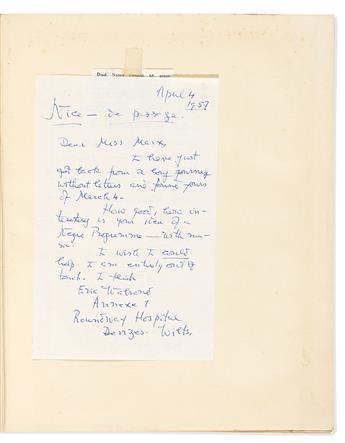 April 4
1957
Nice — de passage.
Dear Miss Marx,
I have just
got back from a long journey
without letters and found yours
of March 4.
How good, how in-
teresting is your idea of a
Negro Programme — with mu-
sic.
I wish I could
help. I am entirely out of
touch. I think
Eric Walrond
Annexe 1
Roundway Hospital
Devizes. Wilts,